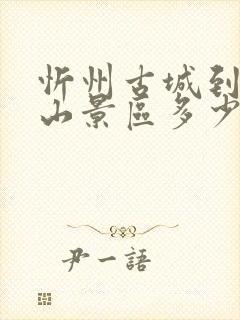 忻州古城到
山景區多少
尹一語